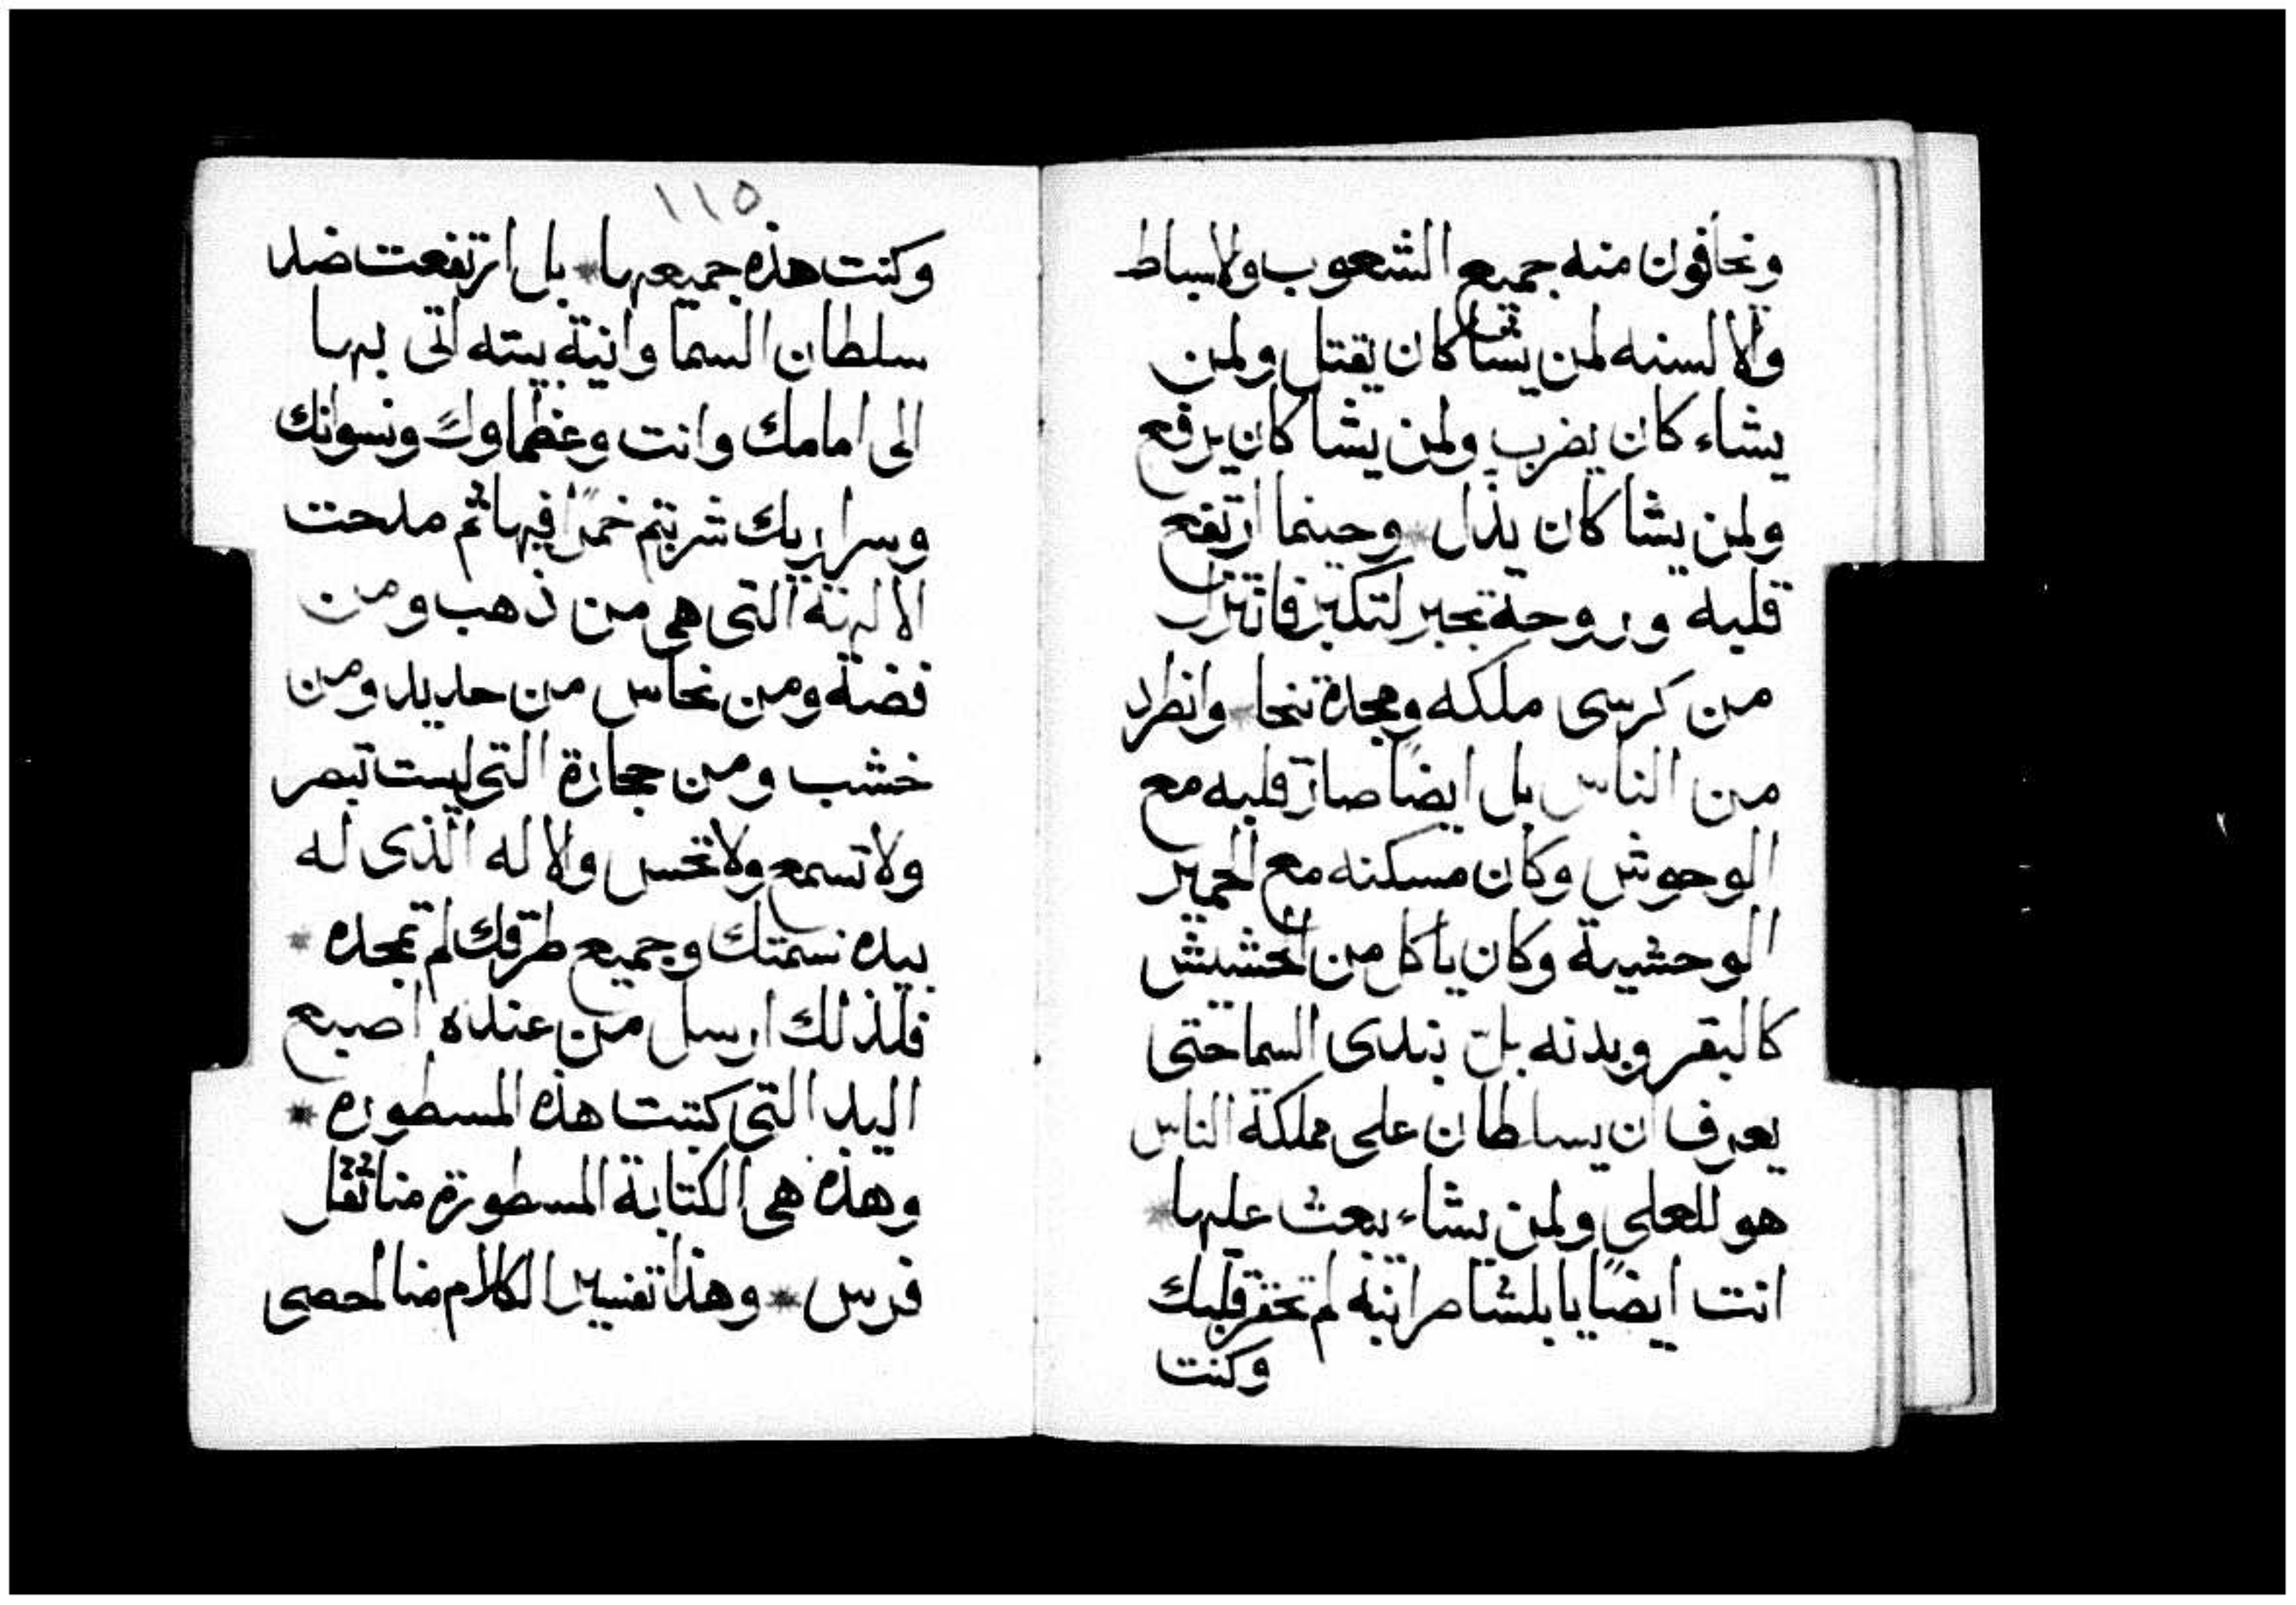 ونحافون منه جميع الشعوب ولاسباط
والالسنه لمن يشا كان يقتل ولمن
يشاء كان يضرب ولمن يشا كان يرفع
ولمن يشا كان يذل * وحينما ارتفع
قلبه وروحة تجبر لتكبر فاتنزل
من كرسى ملكه ومجدة تنحا * وانطرد
من الناس بل ايضاً صار قلبه مع
الوحوش وكان مسكنه مع الحمير
الوحشية وكان ياكل من الحشيش
كالبقر وبدنه بل بندى السما حتى
يعرف ان يسلطان على مملكة الناس
هو للعلى ولمن يشاء يبعث عليها *
انت ايضًا يا بلشاصر ابنه لم تحقر قلبك
وكنت
١١٥
وكنت هذه جميعها * بل ارتفعت ضد
سلطان السما وانية بيته اتى بها
الى امامك وانت وعظماوك ونسوانك
وسراريك شربتم خمرًا فيها ثم مدحت
الالهة التى هى من ذهب ومن
فضة ومن نحاس من حديد ومن
خشب ومن حجارة التى ليست تبصر
ولا تسمع ولا تحس والاله الذى له
بيده نسمتك وجميع طرقك لم تمجده *
فلذلك ارسل من عنده اصبع
اليد التى كتبت هذه المسطوره *
وهذه هى الكتابة المسطورة منا ثقل
فرس * وهذا تفسير الكلام منا احصى